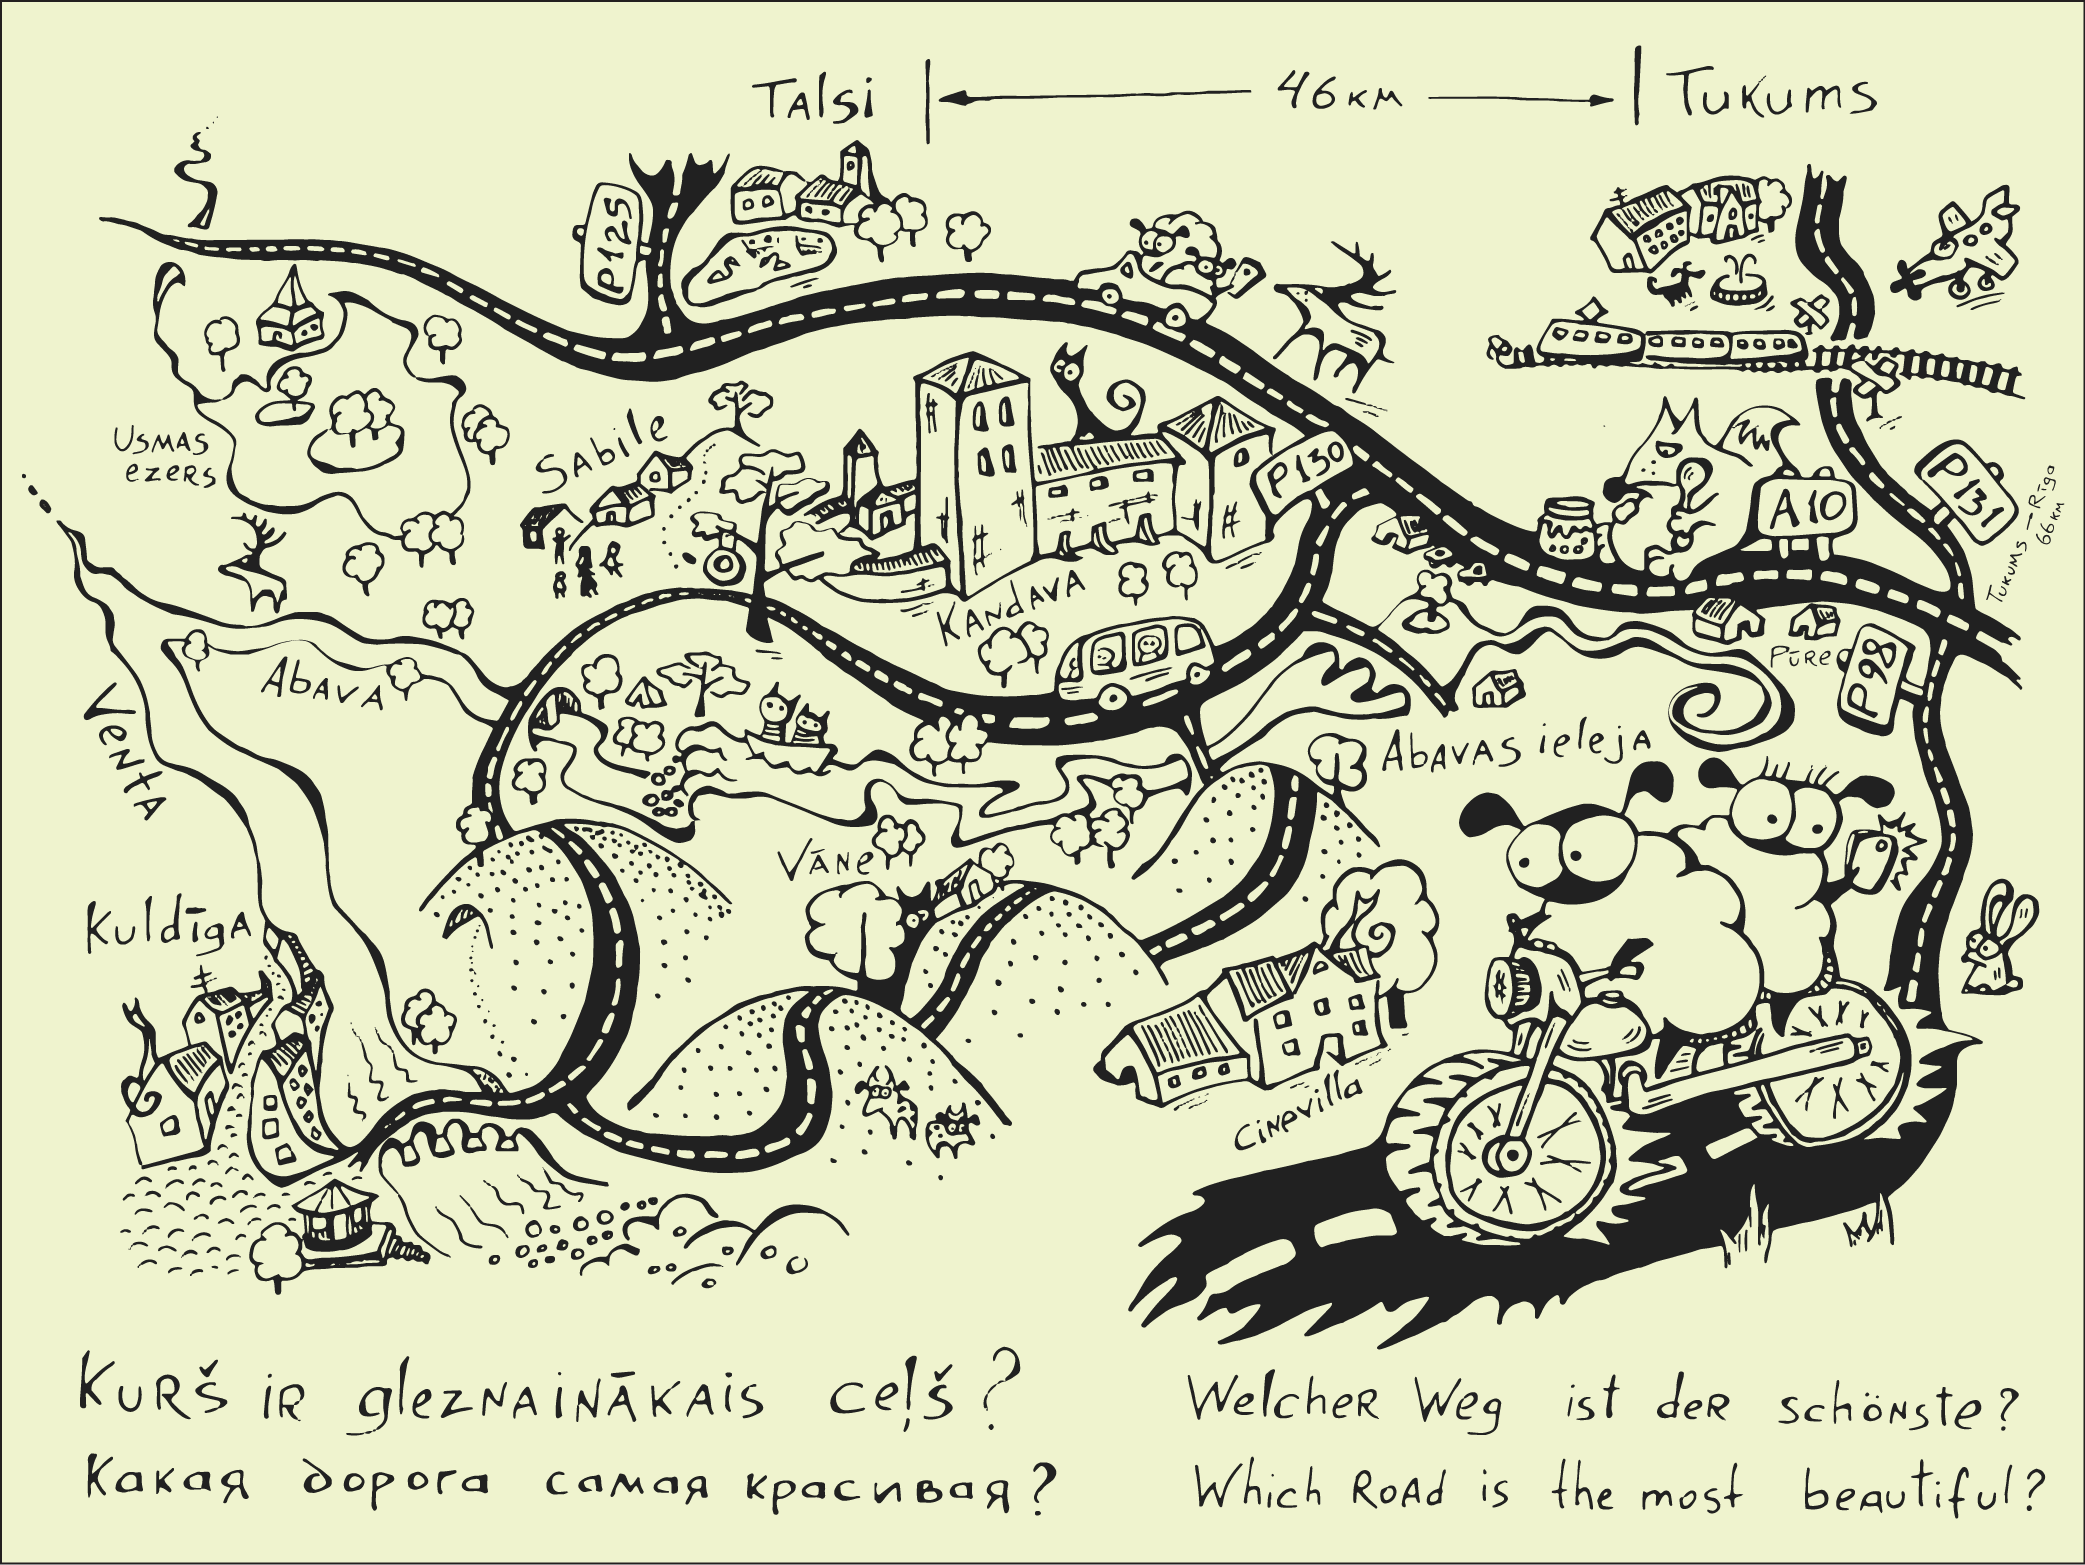 Talsi
46 км
Tukums
P125
Usmas
ezers
Sabile
P130
A10
P131
Tukums – Rīga
66 км
Kandava
Pūre
P98
Abava
Venta
Abavas ieleja
Vāne
Kuldīga
Cinevilla
Kurš ir gleznainākais ceļš?
Какая дорога самая красивая?
Welcher Weg ist der schönste?
Which Road is the most beautiful?